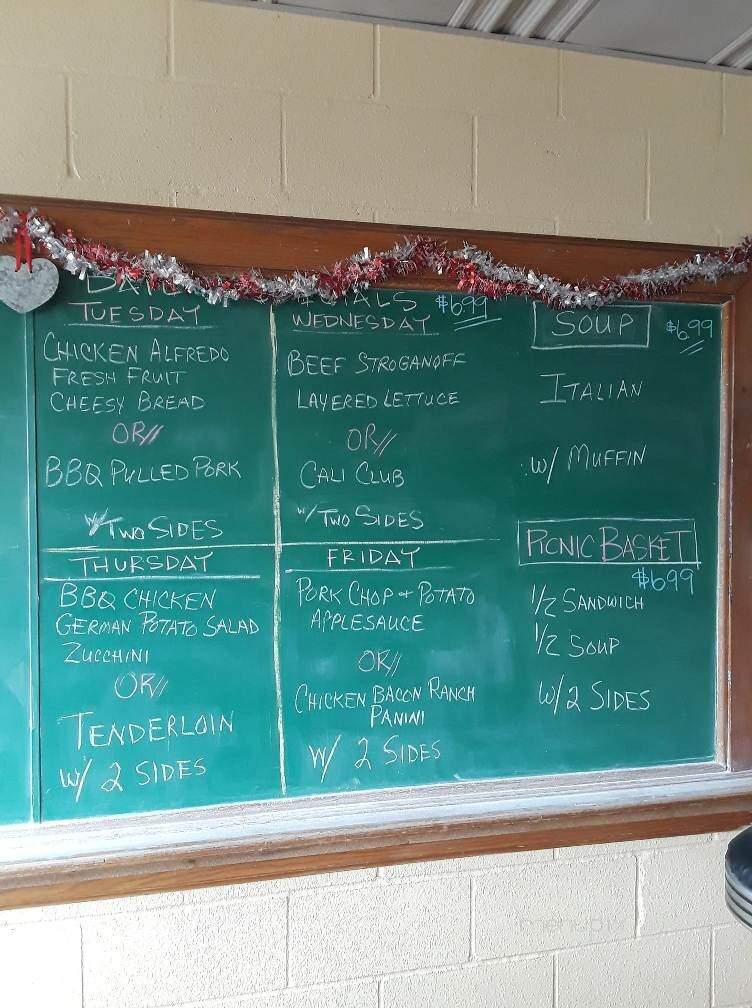 $6.99
TUESDAY
CHICKEN ALFREDO
FRESH FRUIT
CHEESY BREAD
OR//
BBQ PULLED PORK
W/ TWO SIDES
WEDNESDAY
BEEF STROGANOFF
LAYERED LETTUCE
OR//
CALI CLUB
W/ TWO SIDES
THURSDAY
BBQ CHICKEN
GERMAN POTATO SALAD
ZUCCHINI
OR//
TENDERLOIN
W/ 2 SIDES
FRIDAY
PORK CHOP + POTATO
APPLESAUCE
OR//
CHICKEN BACON RANCH
PANINI
W/ 2 SIDES
SOUP $6.99
ITALIAN
W/ MUFFIN
PICNIC BASKET
$6.99
1/2 SANDWICH
1/2 SOUP
W/2 SIDES